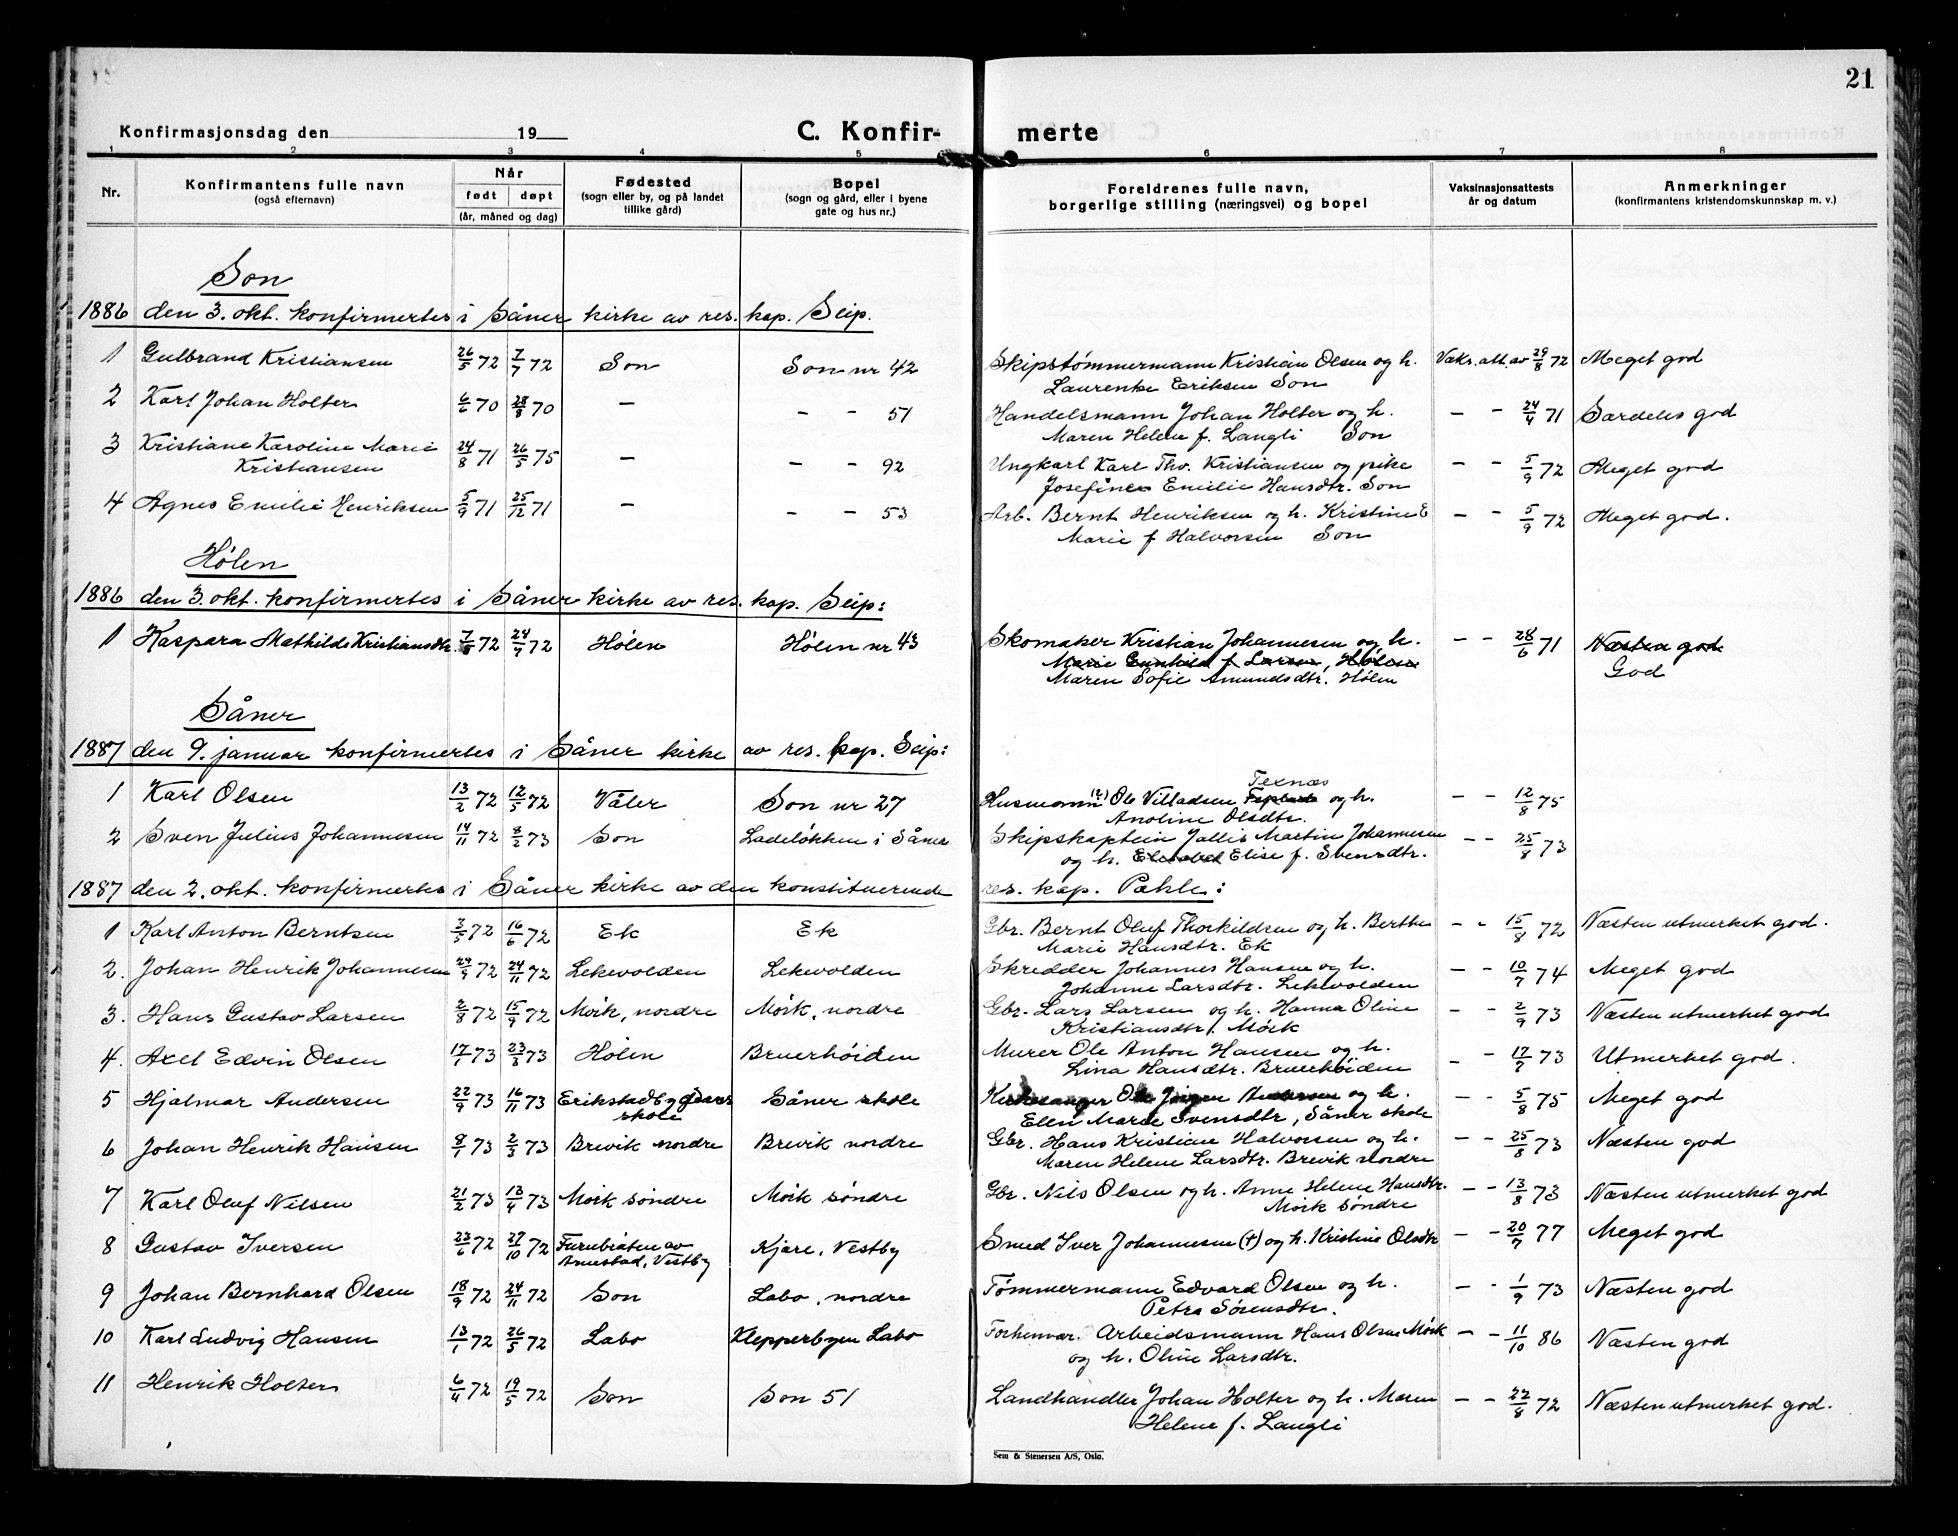 21
Konfirmasjonsdag den 19
C. Konfir- merte
1 2 3 4 5 6 7 8
Nr.
Konfirmantens fulle navn
(også efternavn)
Når
født døpt
(år, måned og dag)
Fødested
(sogn eller by, og på landet
tillike gård)
Bopel
(sogn og gård, eller i byene
gate og hus nr.)
Foreldrenes fulle navn,
borgerlige stilling (næringsvei) og bopel
Vaksinasjonsattests
år og datum
Anmerkninger
(konfirmantens kristendomskunnskap m. v.)
Son
1886 den 3. okt. konfirmertes i Såner kirke av res. kap. Seip.
1 Gulbrand Kristiansen 26/5 72 7/7 72 Son Son nr 42 Skipstømmermann Kristian Olsen og h. Vaks. att. av 29/8 72 Meget god
Laurenke Eriksen Son
2 Karl Johan Holter 6/6 70 28/8 70 – – - 51 Handelsmann Johan Holter og h. – - 24/4 71 Særdeles god
Maren Helene f. Langli Son
3 Kristiane Karoline Marie 24/8 71 26/5 75 – – - 92 Ungkarl Karl Thv. Kristiansen og pike – - 5/9 72 Meget god
Kristiansen Josefine Emilie Hansdtr. Son
4 Agnes Emilie Henriksen 5/9 71 25/12 71 – – - 53 Arb. Bernt Henriksen og h. Kristine E – - 5/9 72 Meget god.
Marie f Halvorsen Son
Hølen
1886 den 3. okt. konfirmertes i Såner kirke av res. kap. Seip:
1 Kaspara Mathilde Kristiansdtr. 72 24/7 72 Hølen Hølen nr 43 Skomaker Kristian Johannesen og h. – - 28/6 71 Næsten god
Marie Gunhild f Larsen, Hølen God
Maren Sofie Amundsdtr. Hølen
Såner
1887 den 9. januar konfirmertes i Såner kirke av res. kap. Seip:
Texnæs
1 Karl Olsen 13/2 72 12/5 72 Våler Son nr 27 Husmann Ole Villadsen og h. – - 12/8 75
Anoline Olsdtr.
2 Sven Julius Johannesen 14/11 72 8/2 73 Son Ladeløkken i Såner Skipskaptein Martin Johannesen – - 25/8 73
og h. Elise f. Svensdtr.
1887 den 2. okt. konfirmertes i Såner kirke av den konstituerende res. kap. Pahle:
1 Karl Anton Berntsen 3/5 72 16/6 72 Ek Ek Gbr. Bernt Oluf Thorkildsen og h. Berthe – - 15/8 72 Næsten utmerket god.
Marie Hansdtr. Ek
2. Johan Henrik Johannesen 29/9 72 24/11 72 Lekevolden Lekevolden Skredder Johannes Hansen og h. – - 10/7 74 Meget god
Johanne Larsdtr. Lekevolden
3. Hans Gustav Larsen 2/8 72 15/9 72 Mørk, nordre Mørk, nordre Gbr. Lars Larsen og h. Hanna Oline – - 2/9 73 Næsten utmerket god
Kristiansdtr. Mørk
4. Axel Edvin Olsen 17/1 73 23/3 73 Hølen Bruerhøiden Murer Ole Anton Hansen og h. – - 17/7 73 Utmerket god.
Lina Hansdtr. Bruerhøiden
5 Hjalmar Andersen 22/9 73 16/11 73 Erikstadbygdens Såner skole Kirkesanger Ole Jørgen Andersen og h. – - 5/8 75 Meget god
skole Elen Marie Svensdtr, Såner skole
6 Johan Henrik Hansen 9/1 73 2/3 73 Brevik nordre Brevik nordre Gbr. Hans Kristian Halvorsen og h. – - 25/8 73 Næsten god
Maren Helene Larsdtr. Brevik nordre
7 Karl Oluf Nilsen 21/2 73 13/4 73 Mørk søndre Mørk søndre Gbr. Nils Olsen og h. Anne Helene Hansdtr. – - 13/8 73 Næsten utmerket god
Mørk søndre
8 Gustav Iversen 23/6 72 27/10 72 Furubråten av Kjøre, Vestby Smed Iver Johannesen (†) og h. Kristine Olsdtr – - 20/7 77 Meget god
Arnestad, Vestby
9 Johan Bernhard Olsen 18/9 72 24/11 72 Son Labo, nordre Tømmermann Edvard Olsen og h. – - 1/9 73 Næsten god
Petra Sørensdtr.
10 Karl Ludvig Hansen 13/1 72 26/5 72 Labo Klepperbyen Labo Forhenvær. Arbeidsmann Hans Olsen Mørk – - 11/10 86 Næsten god
og h. Oline Larsdtr.
11 Henrik Holter 6/4 72 19/5 72 Son Son 51 Landhandler Johan Holter og h. Maren – - 22/8 72 Næsten utmerket god.
Helene f. Langli
Sem & Stenersen A/S, Oslo.